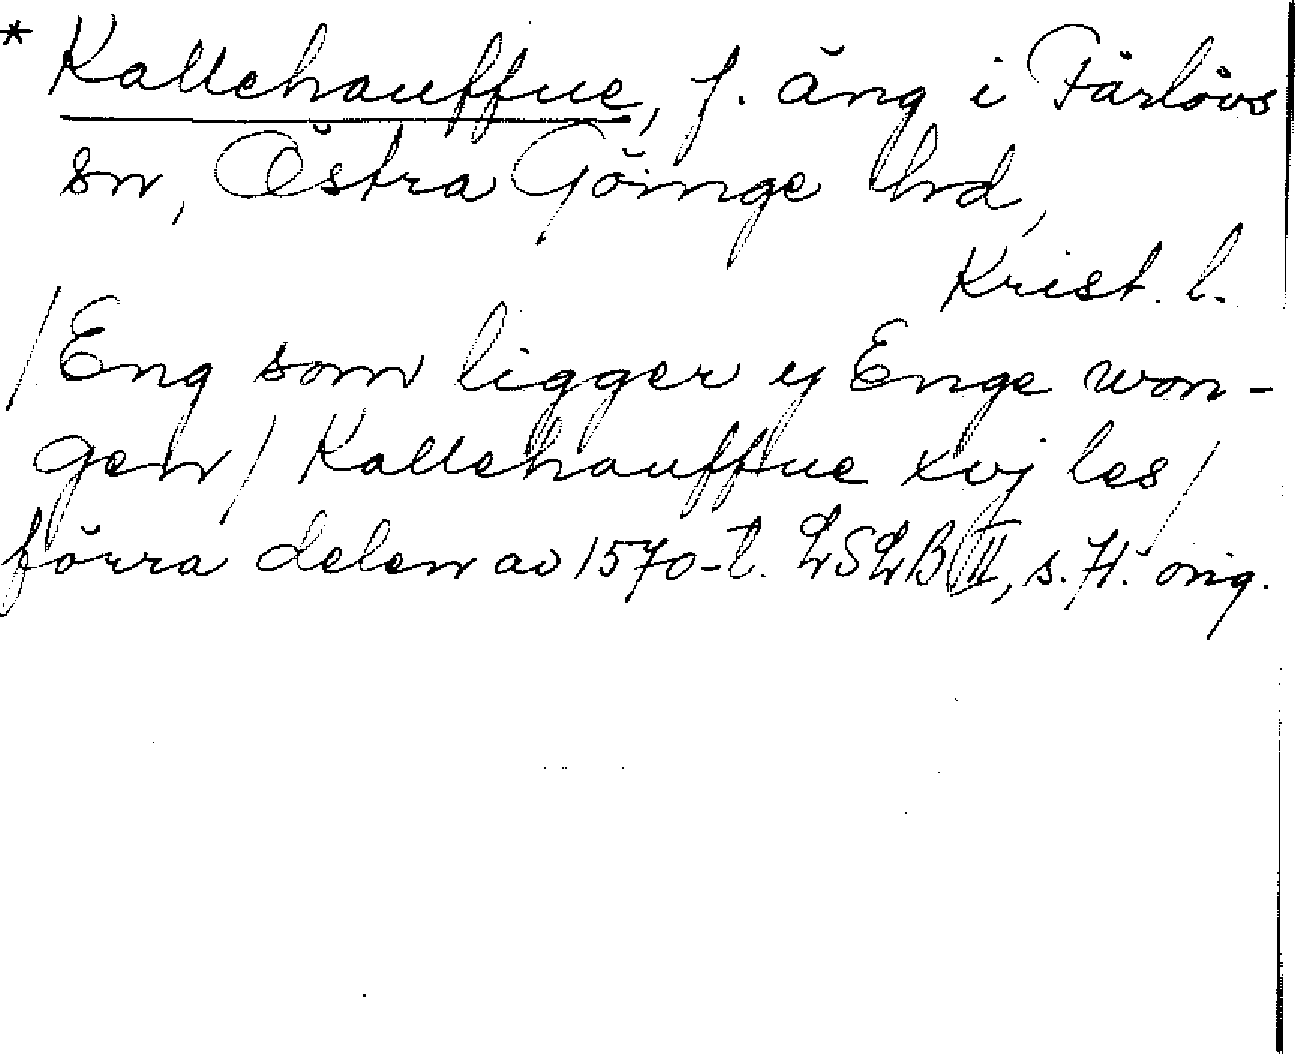 * Kallehauffue, f. äng i Färlövs
sn, Östra Göinge hrd,
Krist. l.
/Eng som ligger y Enge won-
gen/ Kallehauffue xvj les/
förra delen av 1570-t. LSLB III, s. 71. orig.